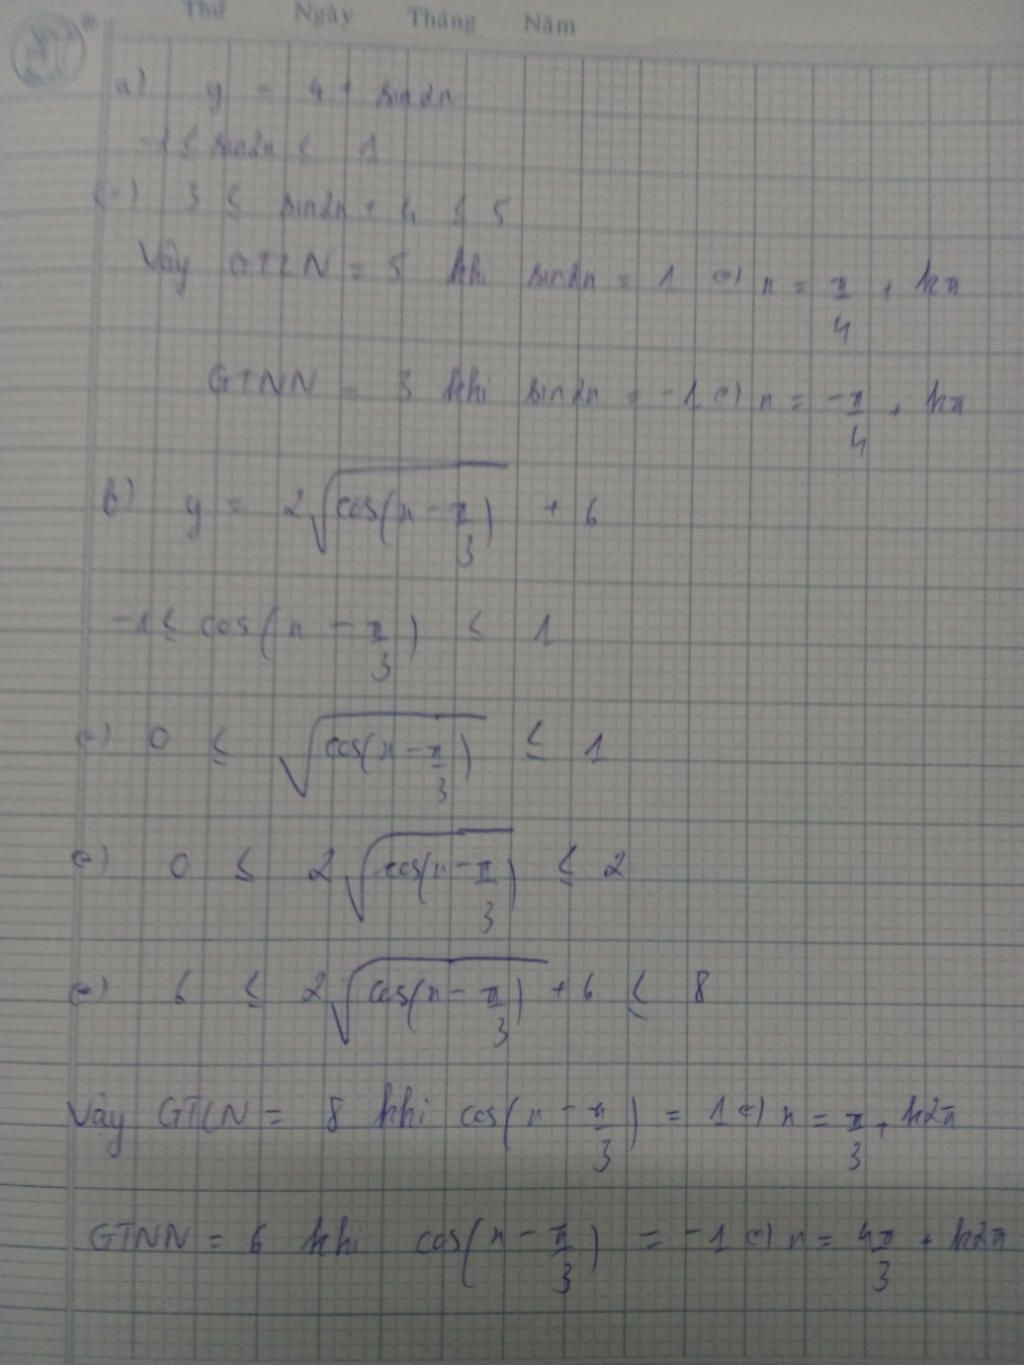 Thứ Ngày Tháng Năm
a) y = 4 + sin2x
-1 ≤ sin2x ≤ 1
(=) 3 ≤ sin2x + 4 ≤ 5
Vậy GTLN = 5 khi sin2x = 1 (=) x = π/4 + kπ
GTNN = 3 khi sin2x = -1 (=) x = -π/4 + kπ
b) y = 2√cos(x - π/3) + 6
-1 ≤ cos(x - π/3) ≤ 1
(=) 0 ≤ √cos(x - π/3) ≤ 1
(=) 0 ≤ 2√cos(x - π/3) ≤ 2
(=) 6 ≤ 2√cos(x - π/3) + 6 ≤ 8
Vậy GTLN = 8 khi cos(x - π/3) = 1 (=) x = π/3 + k2π
GTNN = 6 khi cos(x - π/3) = -1 (=) x = 4π/3 + k2π